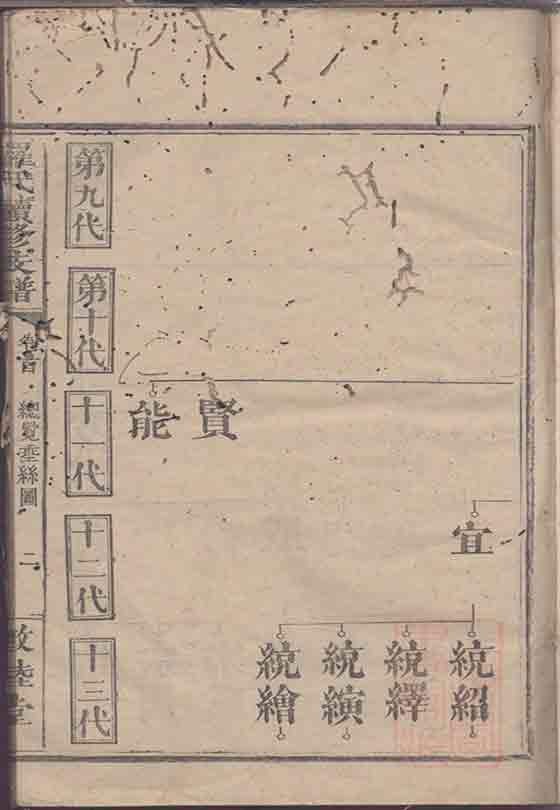 宜
統紹
統繹
統縯
統繪
賢
能
第九代
第十代
十一代
十二代
十三代
羅氏續修支譜
卷首
總覽垂絲圖
二
敦睦堂